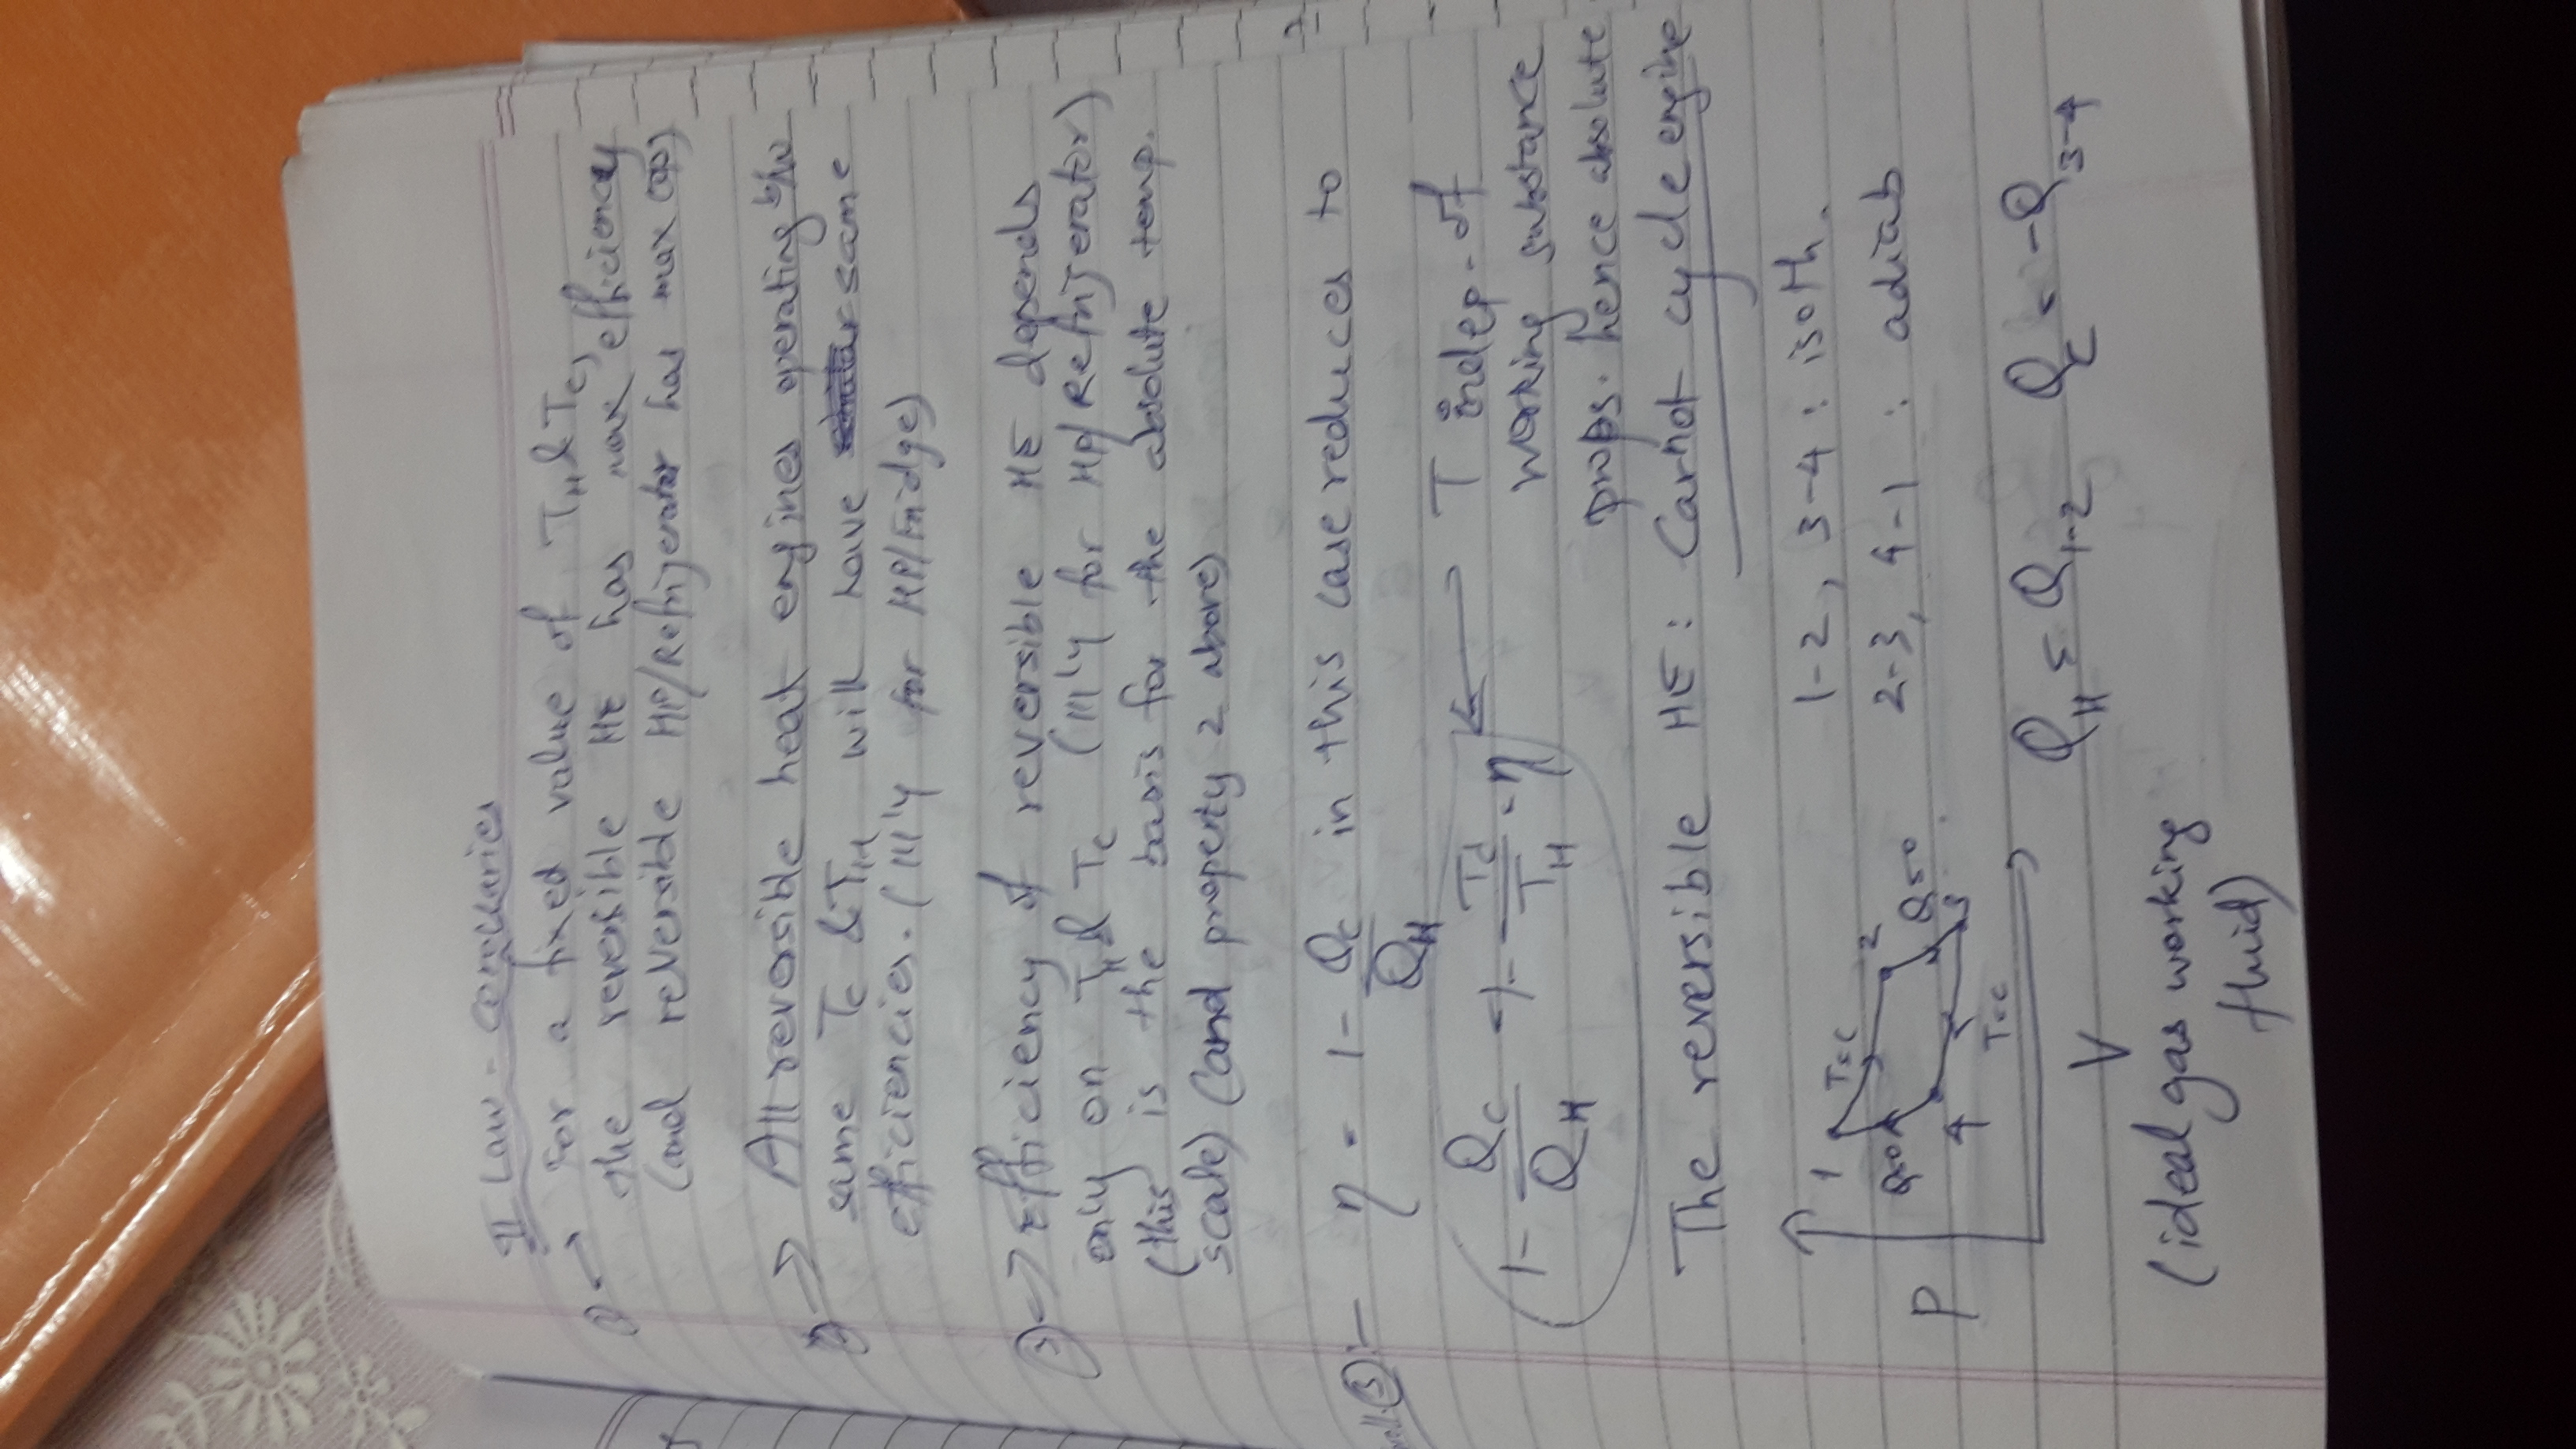 II Law - Corollaries
① → For a fixed value of T_H & T_C,
the reversible HE has max efficiency
(and reversible HP/Refrigerator has max COP)
② → All reversible heat engines operating b/w
same T_C & T_H will have same
efficiencies. (lll'y for HP/Fridge)
③ → Efficiency of reversible HE depends
only on T_H & T_C (lll'y for HP/Refrigerator)
(this is the basis for the absolute temp.
scale) (and property 2 above)
③:- η = 1 - Q_C/Q_H in this case reduces to
1 - Q_C/Q_H = 1 - T_C/T_H = η ← T indep. of
working substance
props. hence absolute
The reversible HE: Carnot cycle engine
1 T=C 2
Q=0 Q=0
P
4 3
T=C
V
(ideal gas working
fluid)
1-2, 3-4 : isoth.
2-3, 4-1 : adiab
Q_H = Q_1-2 Q_C = -Q_3-4